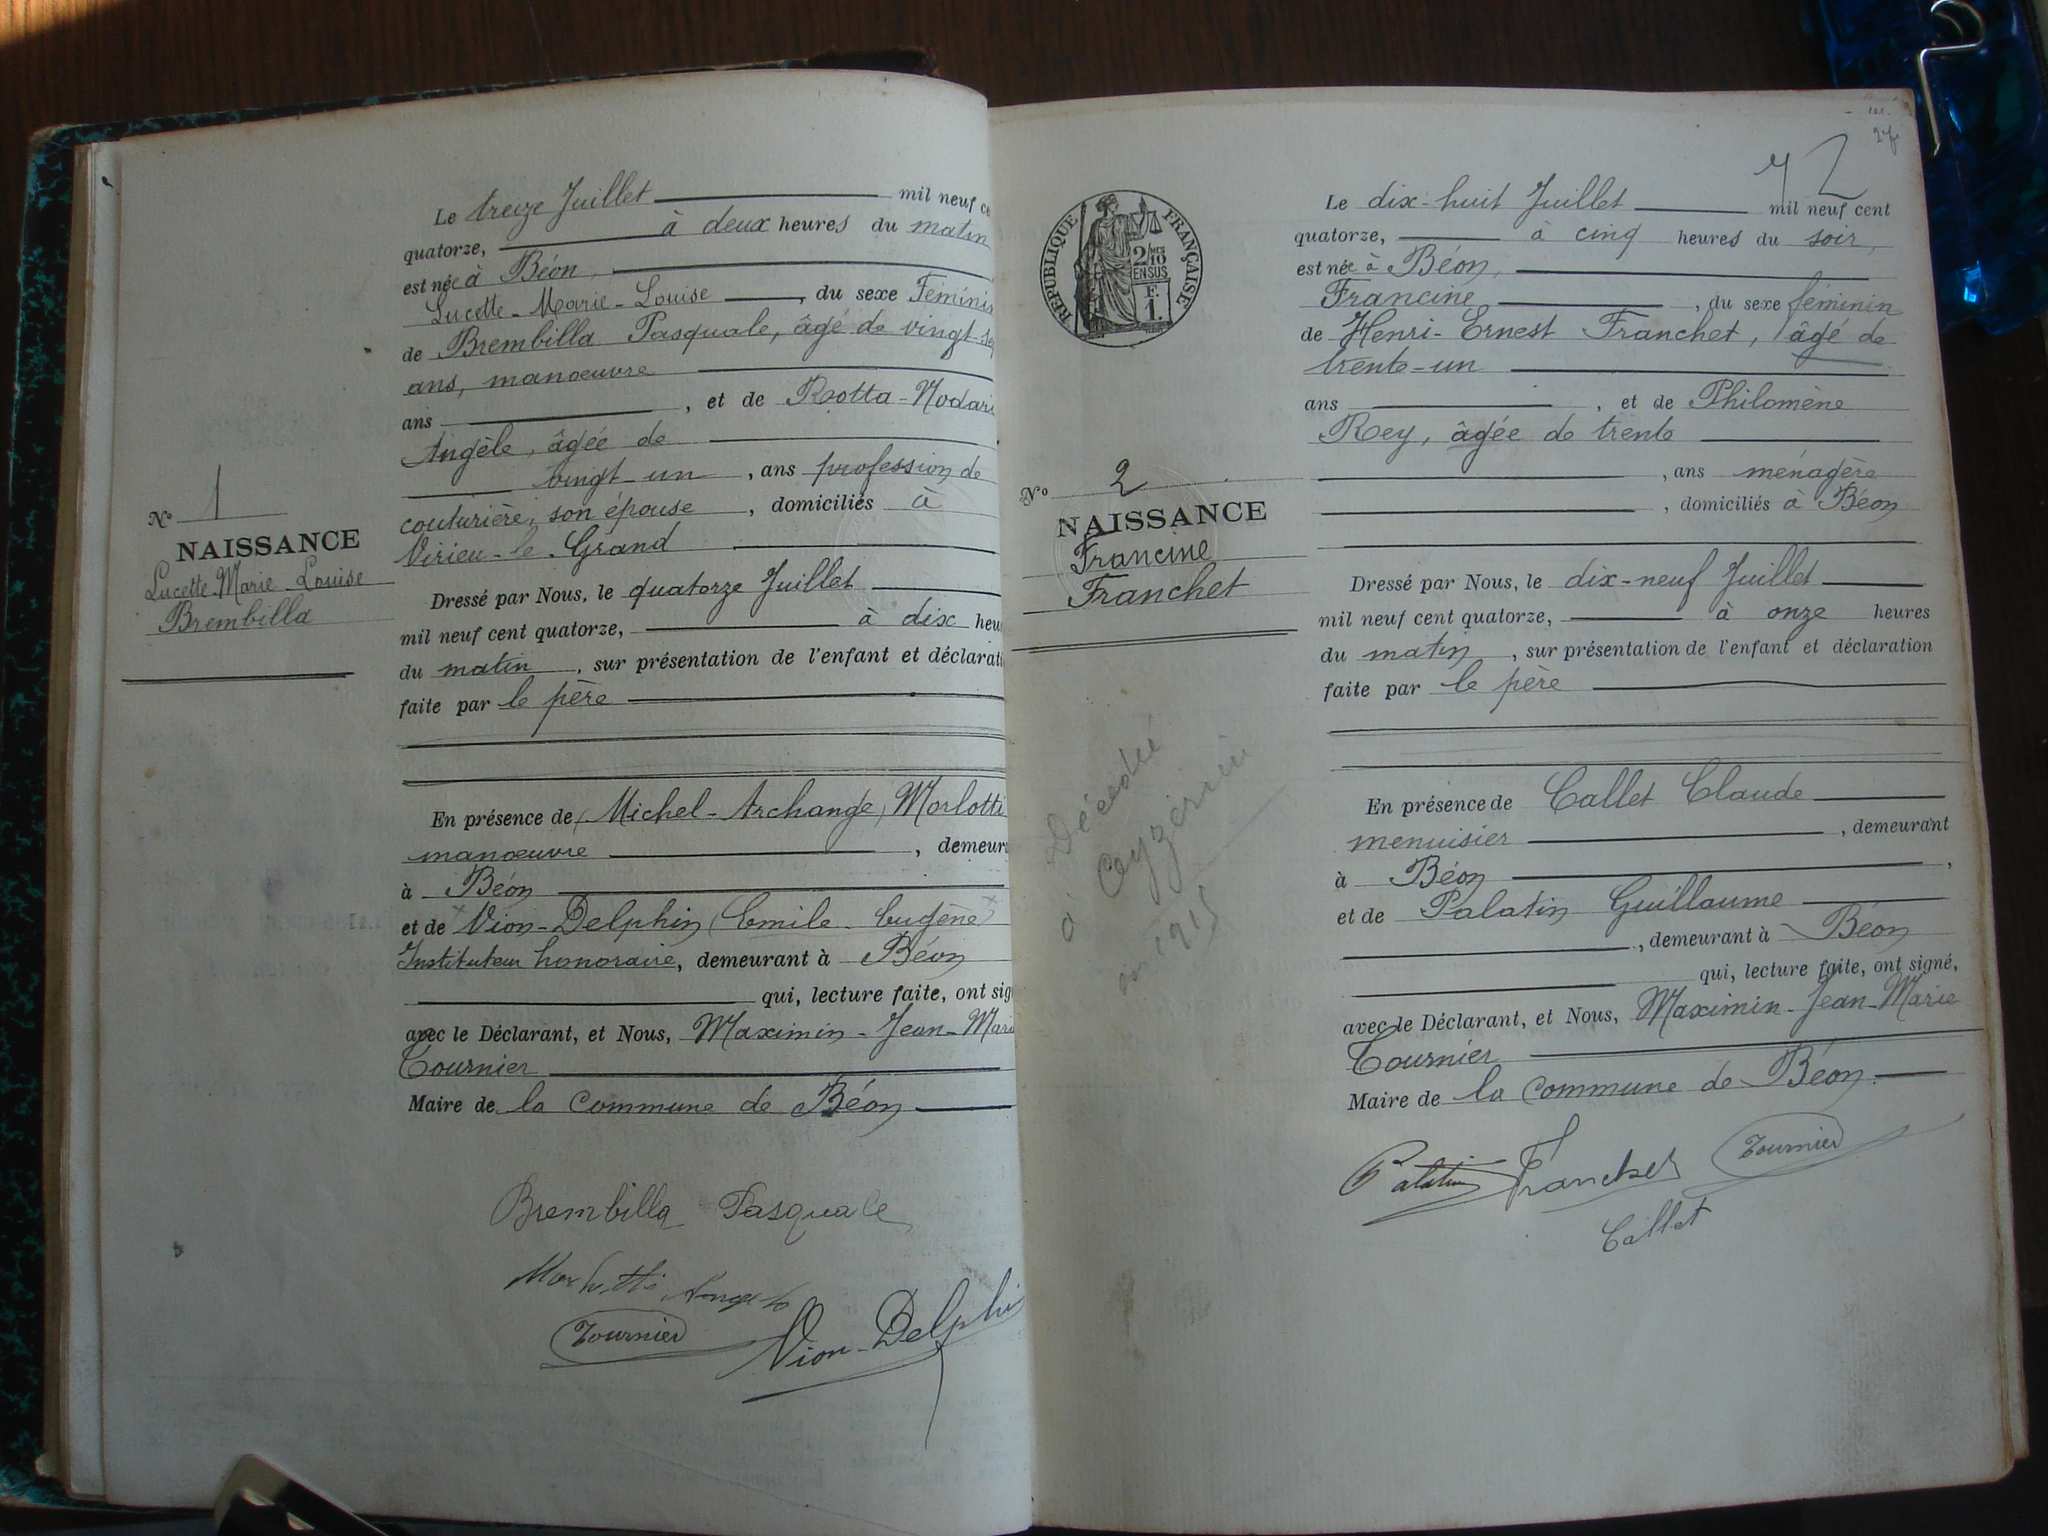 Le treize Juillet mil neuf ce
quatorze, à deux heures du matin
est née à Béon,
Lucette-Marie-Louise, du sexe Féminin
de Brembilla Pasquale, âgé de vingt-sep
ans, manœuvre
ans, et de Rotta-Nodari
Angèle, âgée de
vingt-un, ans profession de
couturière, son épouse, domiciliés à
Virieu-le-Grand
Nº 1
NAISSANCE
Lucette-Marie-Louise
Brembilla
Dressé par Nous, le quatorze Juillet
mil neuf cent quatorze, à dix heu
du matin, sur présentation de l'enfant et déclarati
faite par le père
En présence de Michel-Archange Morlotti
manœuvre, demeur
à Béon
et de Vion-Delphin Emile-Eugène
Instituteur honoraire, demeurant à Béon
qui, lecture faite, ont sig
avec le Déclarant, et Nous, Maximin-Jean-Mari
Tournier
Maire de la commune de Béon
Brembilla Pasquale
Tournier
Vion-Delphi
72
RÉPUBLIQUE FRANÇAISE
2/10
EN SUS
F.
1.
Le dix-huit Juillet mil neuf cent
quatorze, à cinq heures du soir,
est née à Béon,
Francine, du sexe féminin
de Henri-Ernest Franchet, âgé de
trente-un
ans, et de Philomène
Rey, âgée de trente
, ans ménagère
, domiciliés à Béon
Nº 2
NAISSANCE
Francine
Franchet
Dressé par Nous, le dix-neuf Juillet
mil neuf cent quatorze, à onze heures
du matin, sur présentation de l'enfant et déclaration
faite par le père
Décédée
à Ceyzérieu
en 1915
En présence de Callet Claude
menuisier, demeurant
à Béon,
et de Palatin Guillaume
, demeurant à Béon
qui, lecture faite, ont signé,
avec le Déclarant, et Nous, Maximin-Jean-Marie
Tournier
Maire de la commune de Béon.
Palatin Franchet Tournier
Callet